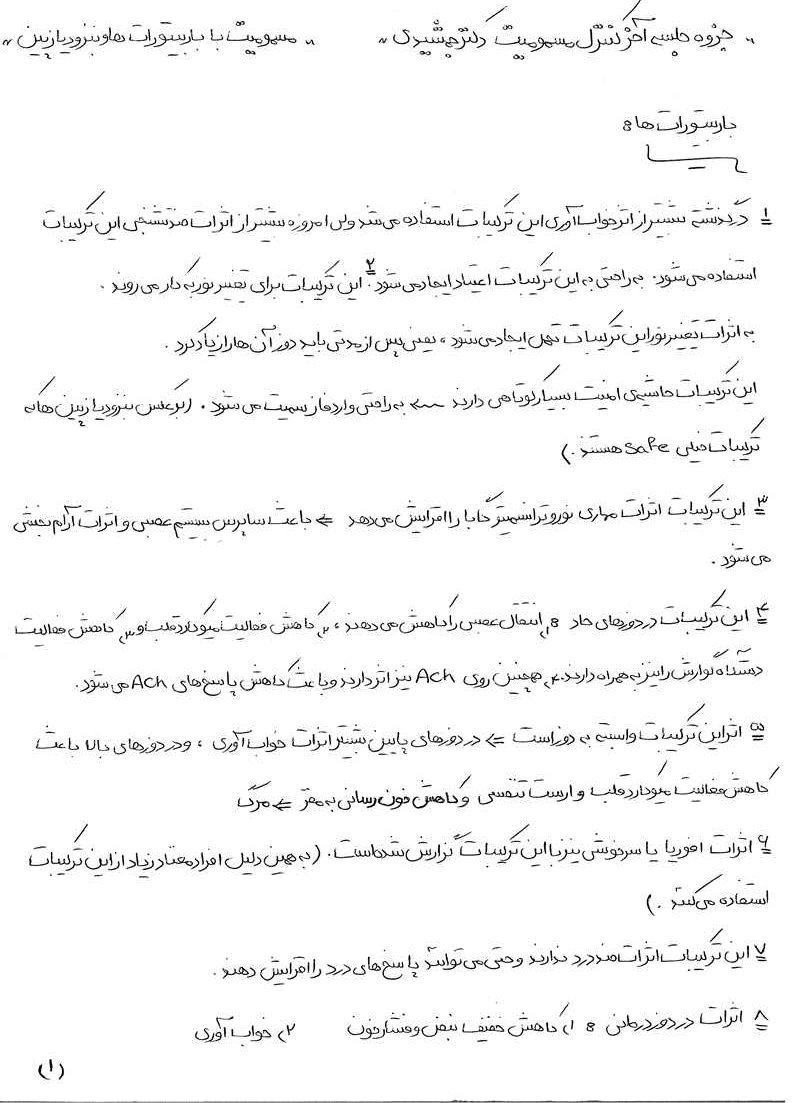 " جزوه جلسه آخر کنترل مسمومیت دکتر جمشیدی " " مسمومیت با باربیتورات ها و بنزودیازپین "
باربیتورات ها :
۱ در گذشته بیشتر از اثر خواب آوری این ترکیبات استفاده می شد ولی امروزه بیشتر از اثرات ضد تشنجی این ترکیبات
استفاده می شود. به راحتی به این ترکیبات اعتیاد ایجاد می شود. ۲ این ترکیبات برای تغییر نور به کار می روند.
به اثرات تغییر نور این ترکیبات تحمل ایجاد می شود، یعنی پس از مدتی باید دوز آن ها را زیاد کرد.
این ترکیبات حاشیه ی امنیت بسیار کوتاهی دارند ← به راحتی وارد فاز سمیت می شود. (بر عکس بنزودیازپین ها که
ترکیبات خیلی safe هستند.)
۳ این ترکیبات اثرات مهاری نوروترانسمیتر گابا را افزایش می دهد ⇐ باعث ساپرس سیستم عصبی و اثرات آرام بخشی
می شود.
۴ این ترکیبات در دوزهای حاد : ۱) انتقال عصبی را کاهش می دهند، ۲) کاهش فعالیت میوکارد قلب و ۳) کاهش فعالیت
دستگاه گوارش را نیز به همراه دارند. ۴) همچنین روی Ach نیز اثر دارند و باعث کاهش پاسخ های Ach می شود.
۵ اثر این ترکیبات وابسته به دوز است ⇐ در دوزهای پایین بیشتر اثرات خواب آوری، و در دوزهای بالا باعث
کاهش فعالیت میوکارد قلب و ارست تنفسی و کاهش خون رسانی به مغز ⇐ مرگ
۶ اثرات افوریا یا سرخوشی نیز با این ترکیبات گزارش شده است. (به همین دلیل افراد معتاد زیاد از این ترکیبات
استفاده می کنند.)
۷ این ترکیبات اثرات ضد درد ندارند و حتی می توانند پاسخ های درد را افزایش دهند.
۸ اثرات در دوز درمانی : ۱) کاهش خفیف نبض و فشار خون ۲) خواب آوری
(۱)